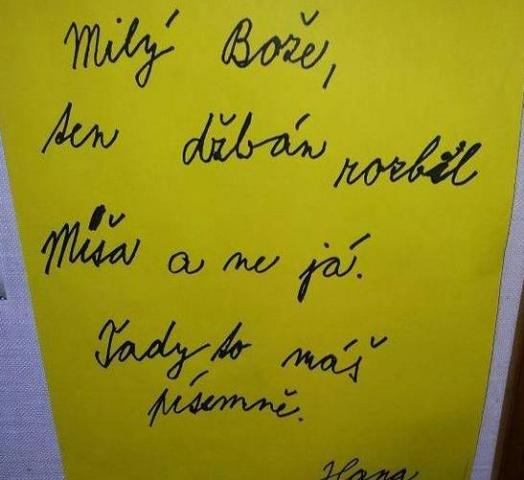 Milý Bože,
ten džbán rozbil
Míša a ne já.
Tady to máš
písemně.
Hana